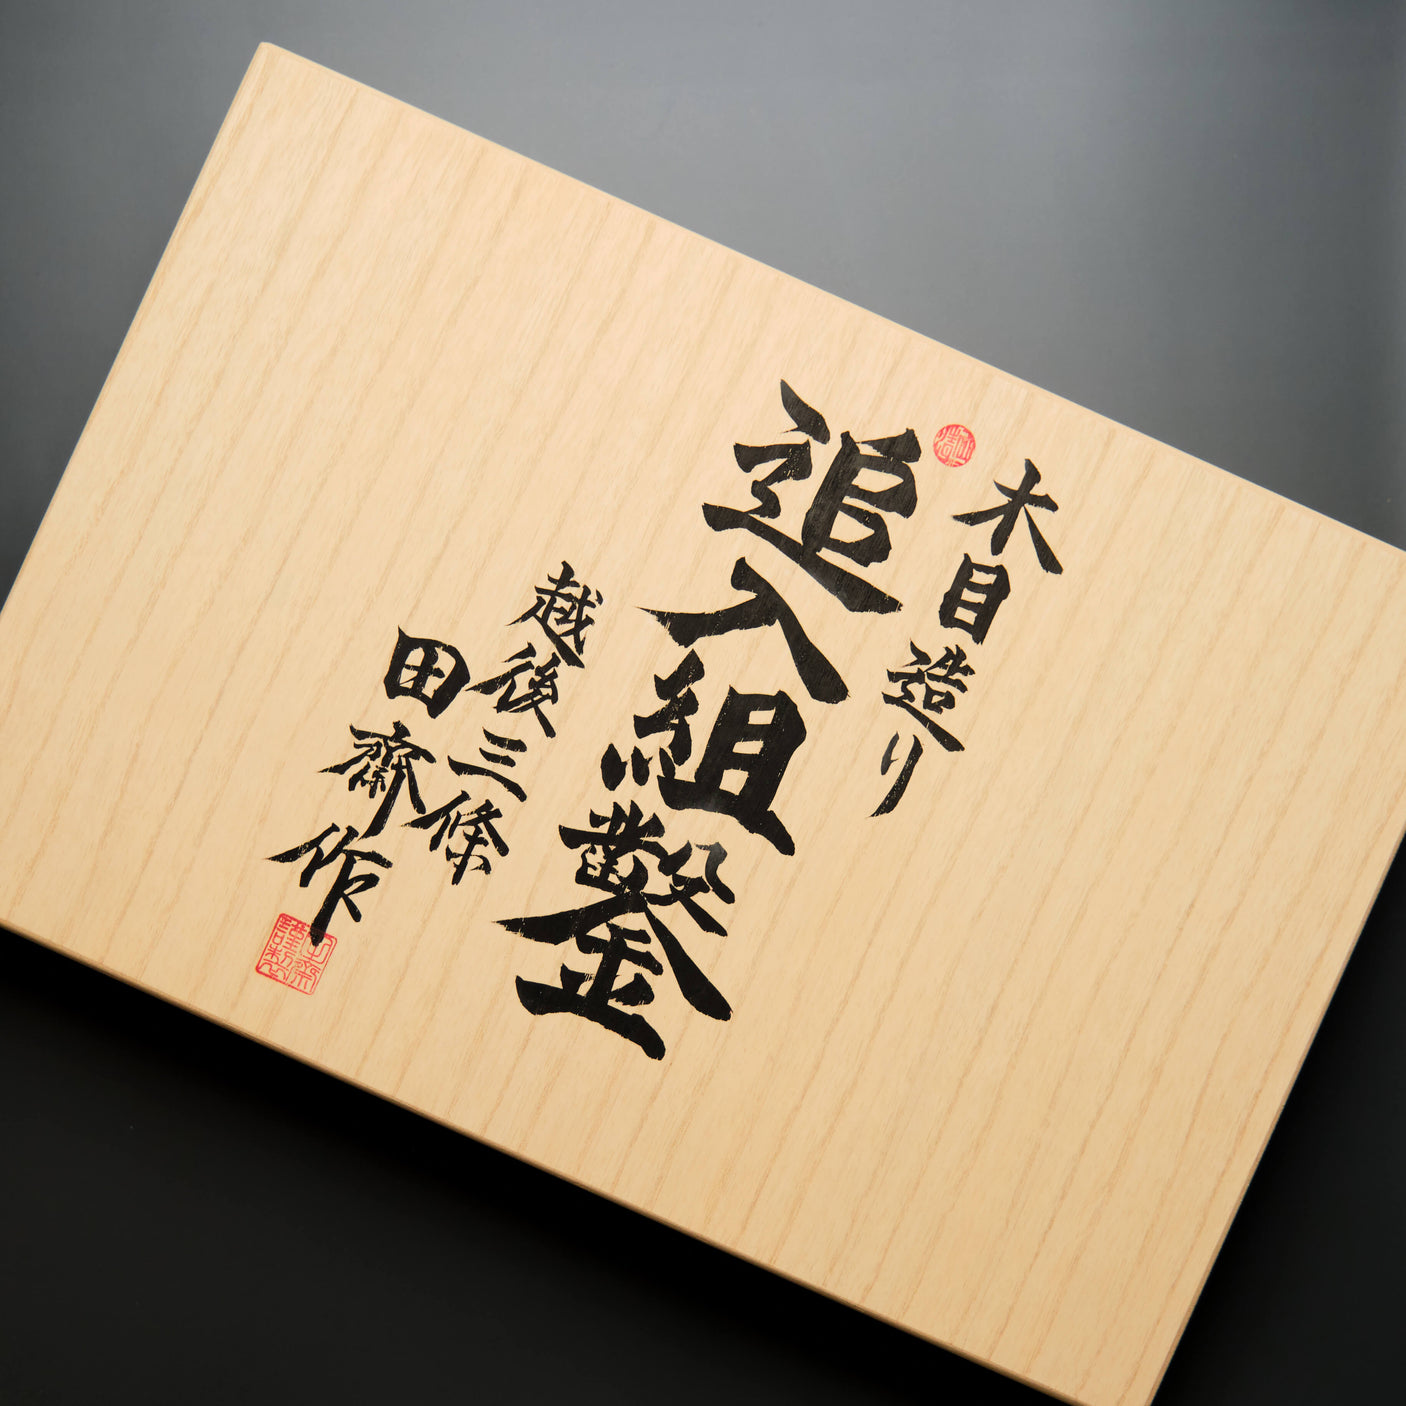 木目造り
追入組鑿
越後三條
田齋作